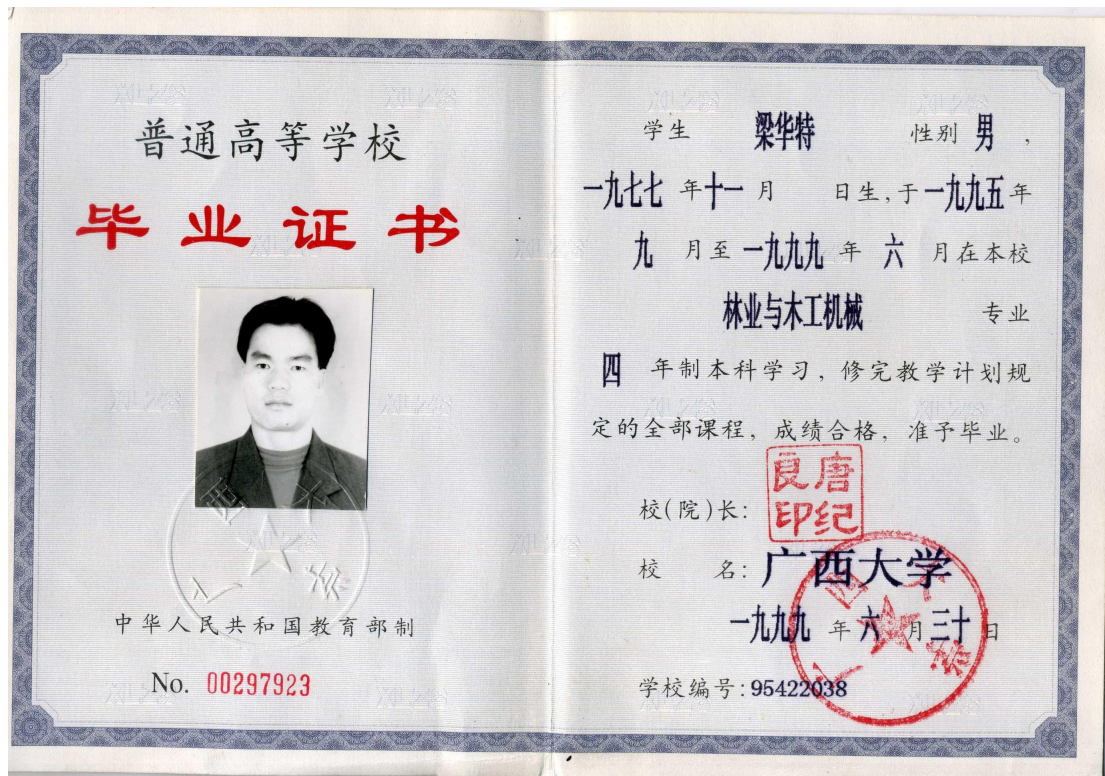 普通高等学校
毕业证书
中华人民共和国教育部制
No. 00297923
学生 梁华特 性别 男，
一九七七 年 十一 月 日生，于 一九九五 年
九 月至 一九九九 年 六 月在本校
林业与木工机械 专业
四 年制本科学习，修完教学计划规
定的全部课程，成绩合格，准予毕业。
校(院)长：
唐纪良印
校 名：广西大学
一九九九 年 六 月 三十 日
学校编号：95422038